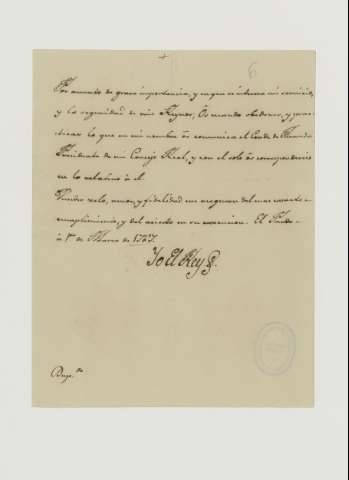 6
Por asunto de grave importancia, y en que se interesa mi servicio,
y la seguridad de mis Reynos, Os mando obedecer, y prac-
ticar lo que en mi nombre os comunica el Conde de Aranda
Presidente de mi Consejo Real, y con él solo os corresponderéis
en lo relativo a él.
Vuestro zelo, amor, y fidelidad me aseguran del mas exacto
cumplimiento, y del acierto en su execucion. El Pardo
a 1º de Marzo de 1767.
Yo El Rey